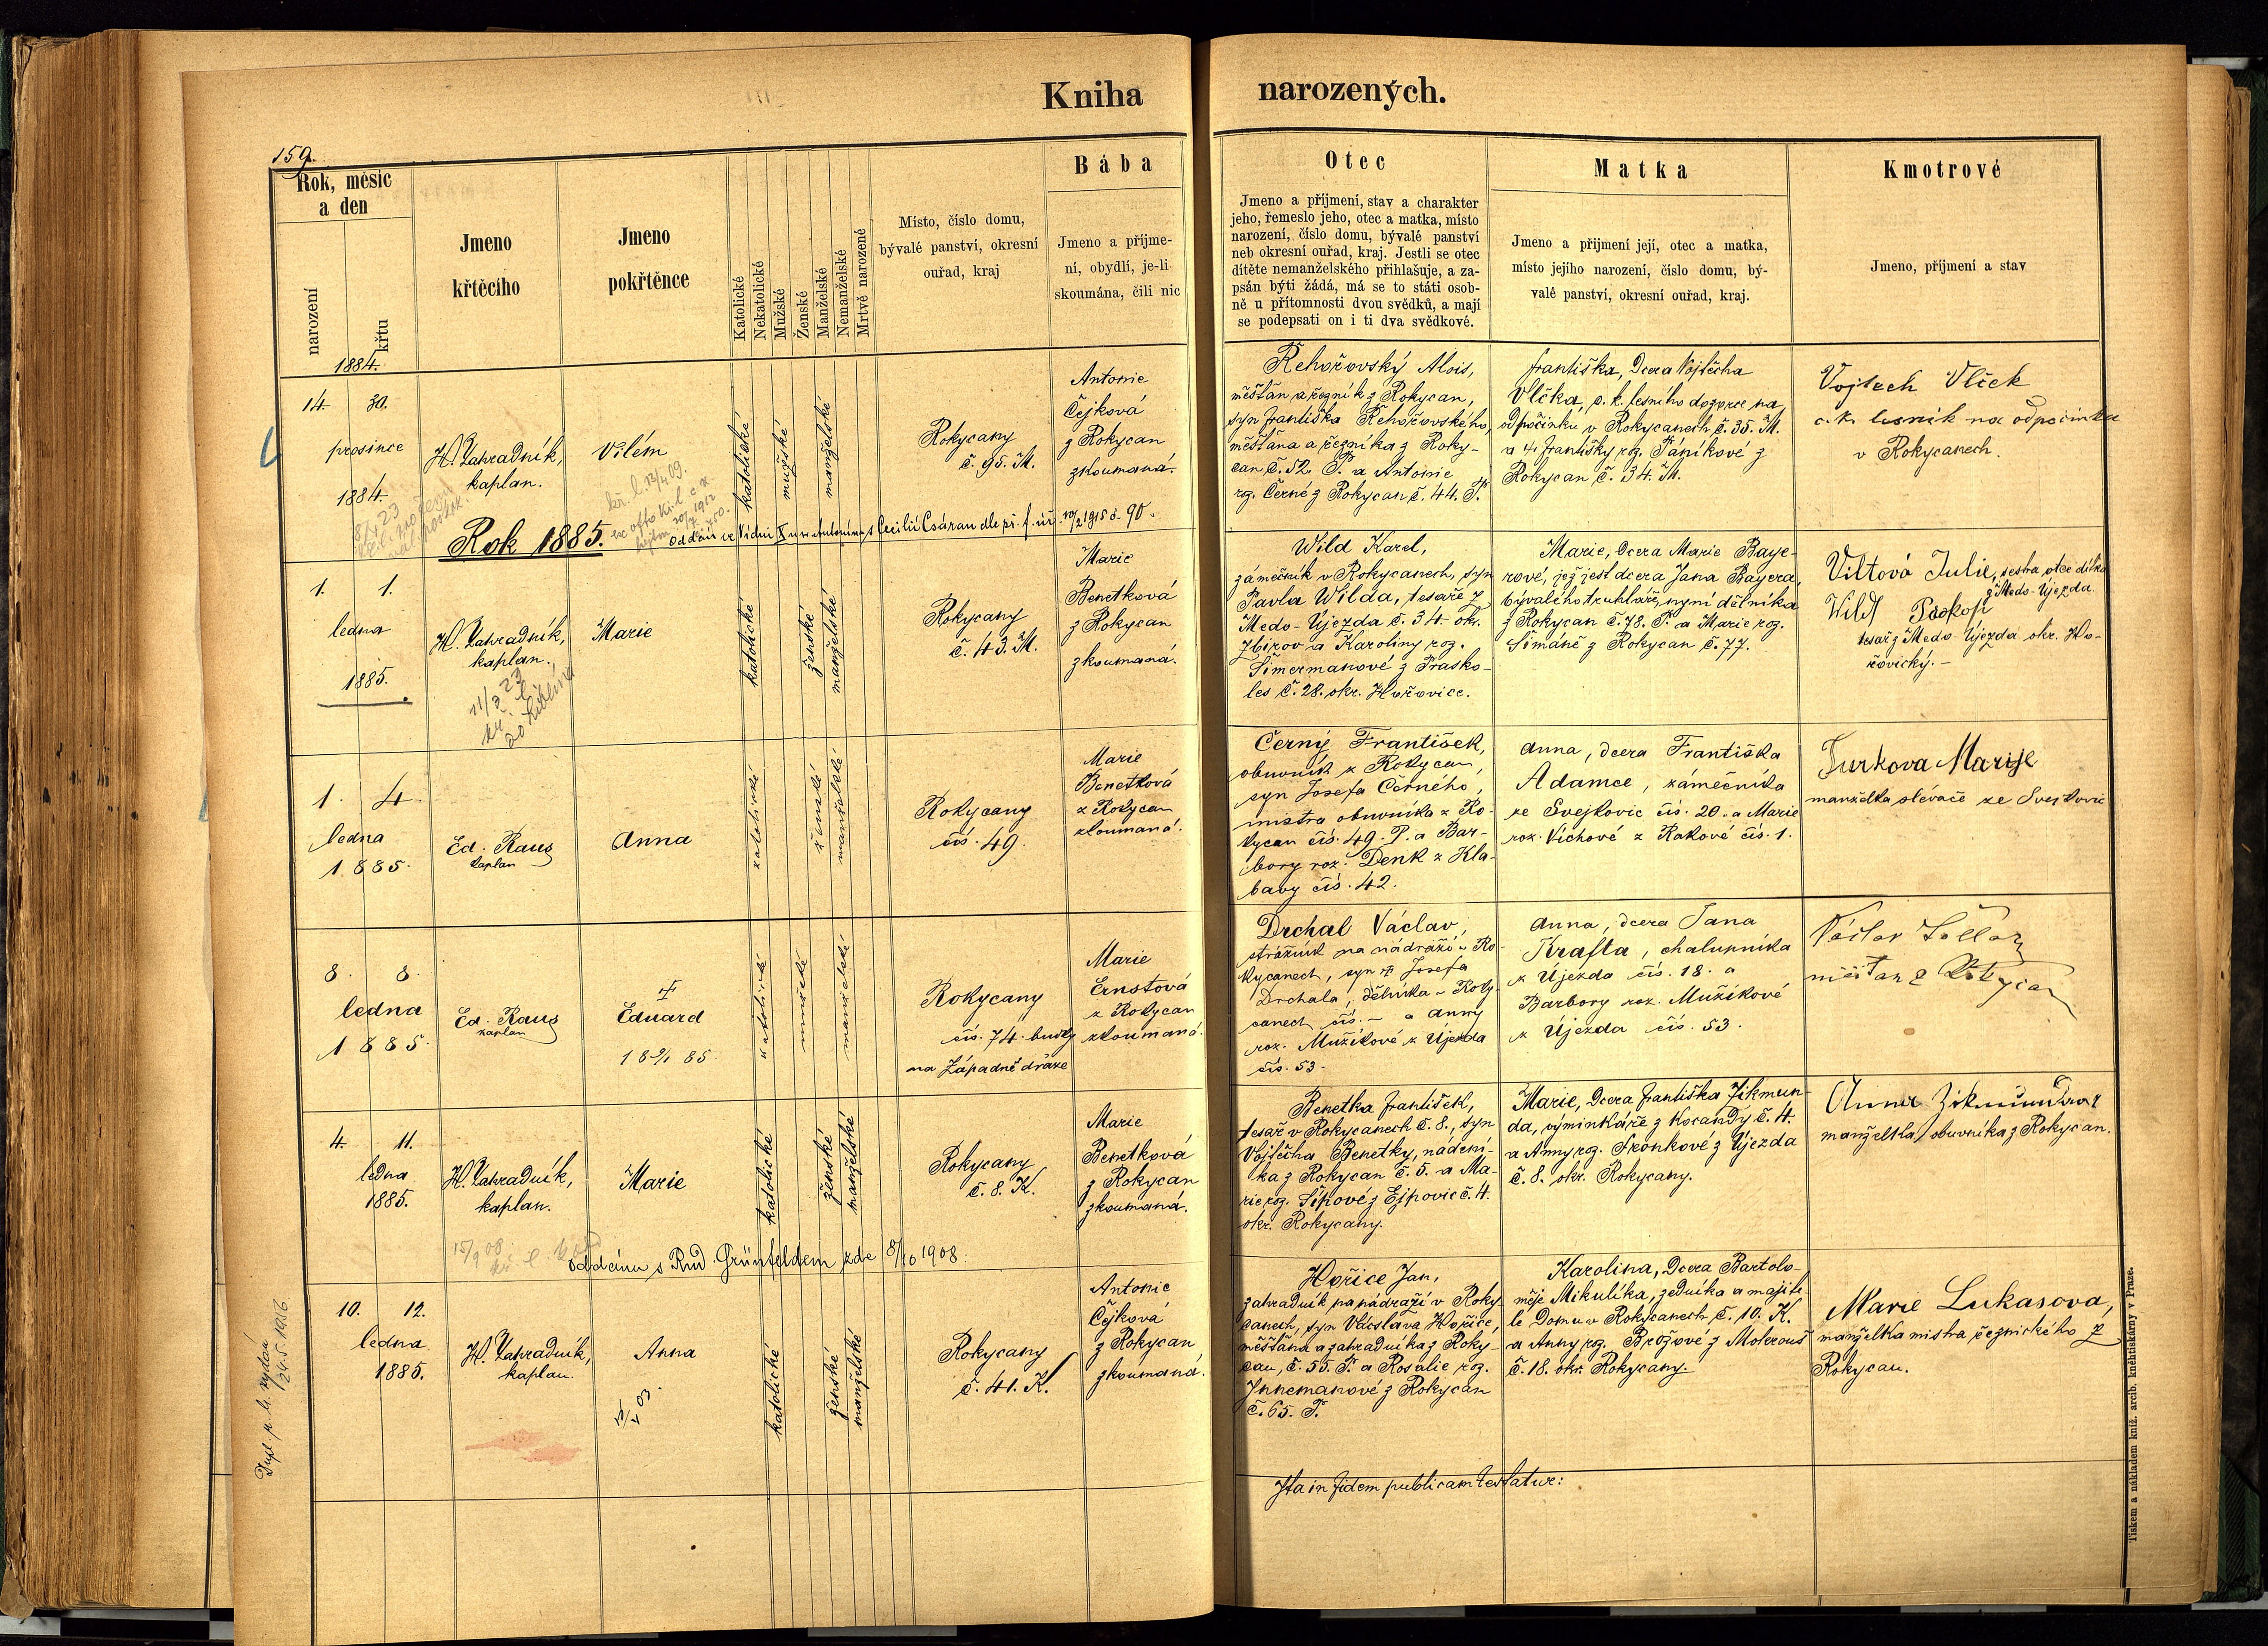 Kniha narozených.
159.
Rok, měsíc
a den
narození
křtu
Jmeno
křtěcího
Jmeno
pokřtěnce
Katolické
Nekatolické
Mužské
Ženské
Manželské
Nemanželské
Mrtvě narozené
Místo, číslo domu,
bývalé panství, okresní
ouřad, kraj
Bába
Jmeno a příjme-
ní, obydlí, je-li
skoumána, čili nic
Otec
Jmeno a příjmení, stav a charakter
jeho, řemeslo jeho, otec a matka, místo
narození, číslo domu, bývalé panství
neb okresní ouřad, kraj. Jestli se otec
dítěte nemanželského přihlašuje, a za-
psán býti žádá, má se to státi osob-
ně u přítomnosti dvou svědků, a mají
se podepsati on i ti dva svědkové.
Matka
Jmeno a příjmení její, otec a matka,
místo jejího narození, číslo domu, bý-
valé panství, okresní ouřad, kraj.
Kmotrové
Jmeno, příjmení a stav
1884.
14. 30.
prosince
1884.
H. Zahradník,
kaplan.
Vilém
katolické
mužské
manželské
Rokycany
č. 95. M.
Antonie
Čejková
z Rokycan
zkoumaná.
Řehořovský Alois,
měšťan a řezník z Rokycan,
syn Františka Řehořovského,
měšťana a řezníka z Roky-
can č. 52. P. a Antonie
roz. Černé z Rokycan č. 44. P.
Františka, dcera Vojtěcha
Vlčka, c. k. lesního dozorce na
odpočinku v Rokycanech č. 35. M.
a Františky roz. Pánikové z
Rokycan č. 34. M.
Vojtech Vlček
c. k. lesník na odpočinku
v Rokycanech.
Rok 1885.
oddán ve Vídni X u sv. Antonína s Cecilií Csáran dle př. f. úř. 10/2 1915 č. 90.
1. 1.
ledna
1885.
H. Zahradník,
kaplan.
11/3 23
Marie
katolické
ženské
manželské
Rokycany
č. 43. M.
Marie
Benetková
z Rokycan
zkoumaná.
Wild Karel,
zámečník v Rokycanech, syn
Pavla Wilda, tesaře z
Medo-Újezda č. 34. okr.
Zbirov a Karoliny roz.
Šimermanové z Prasko-
les č. 28. okr. Hořovice.
Marie, dcera Marie Baye-
rové, jež jest dcera Jana Bayera,
bývalého truhláře, nyní dělníka
z Rokycan č. 78. P. a Marie roz.
Šimáně z Rokycan č. 77.
Viltová Julie, sestra otce dítka
z Medo-Újezda
Wild Prokop
tesař z Medo-Újezda okr. Ho-
řovický.
1. 4.
ledna
1885.
Ed. Raus
kaplan
Anna
katolické
ženské
manželské
Rokycany
čís. 49.
Marie
Benetková
z Rokycan
zkoumaná.
Černý František,
obuvník z Rokycan,
syn Josefa Černého,
mistra obuvníka z Ro-
kycan čís. 49. P. a Bar-
bory roz. Denk z Kla-
bavy čís. 42.
Anna, dcera Františka
Adamce, zámečníka
ze Svejkovic čís. 20. a Marie
roz. Víchové z Rakové čís. 1.
Turkova Marije
manželka slévače ze Svejkovic
8. 8.
ledna
1885.
Ed. Raus
kaplan
Eduard
18 9/1 85
katolické
mužské
manželské
Rokycany
čís. 74. budky
na Západně dráze
Marie
Ernstová
z Rokycan
zkoumaná.
Drchal Václav,
strážník na nádraží v Ro-
kycanech, syn † Josefa
Drchala, dělníka v Roky-
canech čís. – a Anny
roz. Mužíkové z Újezda
čís. 53.
Anna, dcera Jana
Krafta, chalupníka
z Újezda čís. 18. a
Barbory roz. Mužíkové
z Újezda čís. 53.
Václav
měšťan z Rokycan
4. 11.
ledna
1885.
H. Zahradník,
kaplan.
Marie
katolické
ženské
manželské
Rokycany
č. 8. K.
Marie
Benetková
z Rokycan
zkoumaná.
Benetka František,
tesař v Rokycanech č. 8., syn
Vojtěcha Benetky, nádení-
ka z Rokycan č. 5. a Ma-
rie roz. Šípové z Ejpovic č. 4.
okr. Rokycany.
Marie, dcera Františka Zikmun-
da, výminkáře z Kocandy č. 4.
a Anny roz. Skonkové z Újezda
č. 8. okr. Rokycany.
Anna Zikmundova
manželka obuvníka z Rokycan.
15/9 08
oddána s Rud. Grünfeldem zde 8/10 1908.
10. 12.
ledna
1885.
H. Zahradník,
kaplan.
Anna
katolické
ženské
manželské
Rokycany
č. 41. K.
Antonie
Čejková
z Rokycan
zkoumaná.
Hořice Jan,
zahradník na nádraží v Roky-
canech, syn Václava Hořice,
měšťana a zahradníka z Roky-
can, č. 55. P. a Rosalie roz.
Innemanové z Rokycan
č. 65. P.
Karolina, dcera Bartolo-
měje Mikulíka, zedníka a majite-
le domu v Rokycanech č. 10. K.
a Anny roz. Brožové z Mokrouš
č. 18. okr. Rokycany.
Marie Lukasova,
manželka mistra řeznického z
Rokycan.
24.5.1936.
Ita in fidem publicam testatur:
Tiskem a nákladem kníž. arcib. knihtiskárny v Praze.